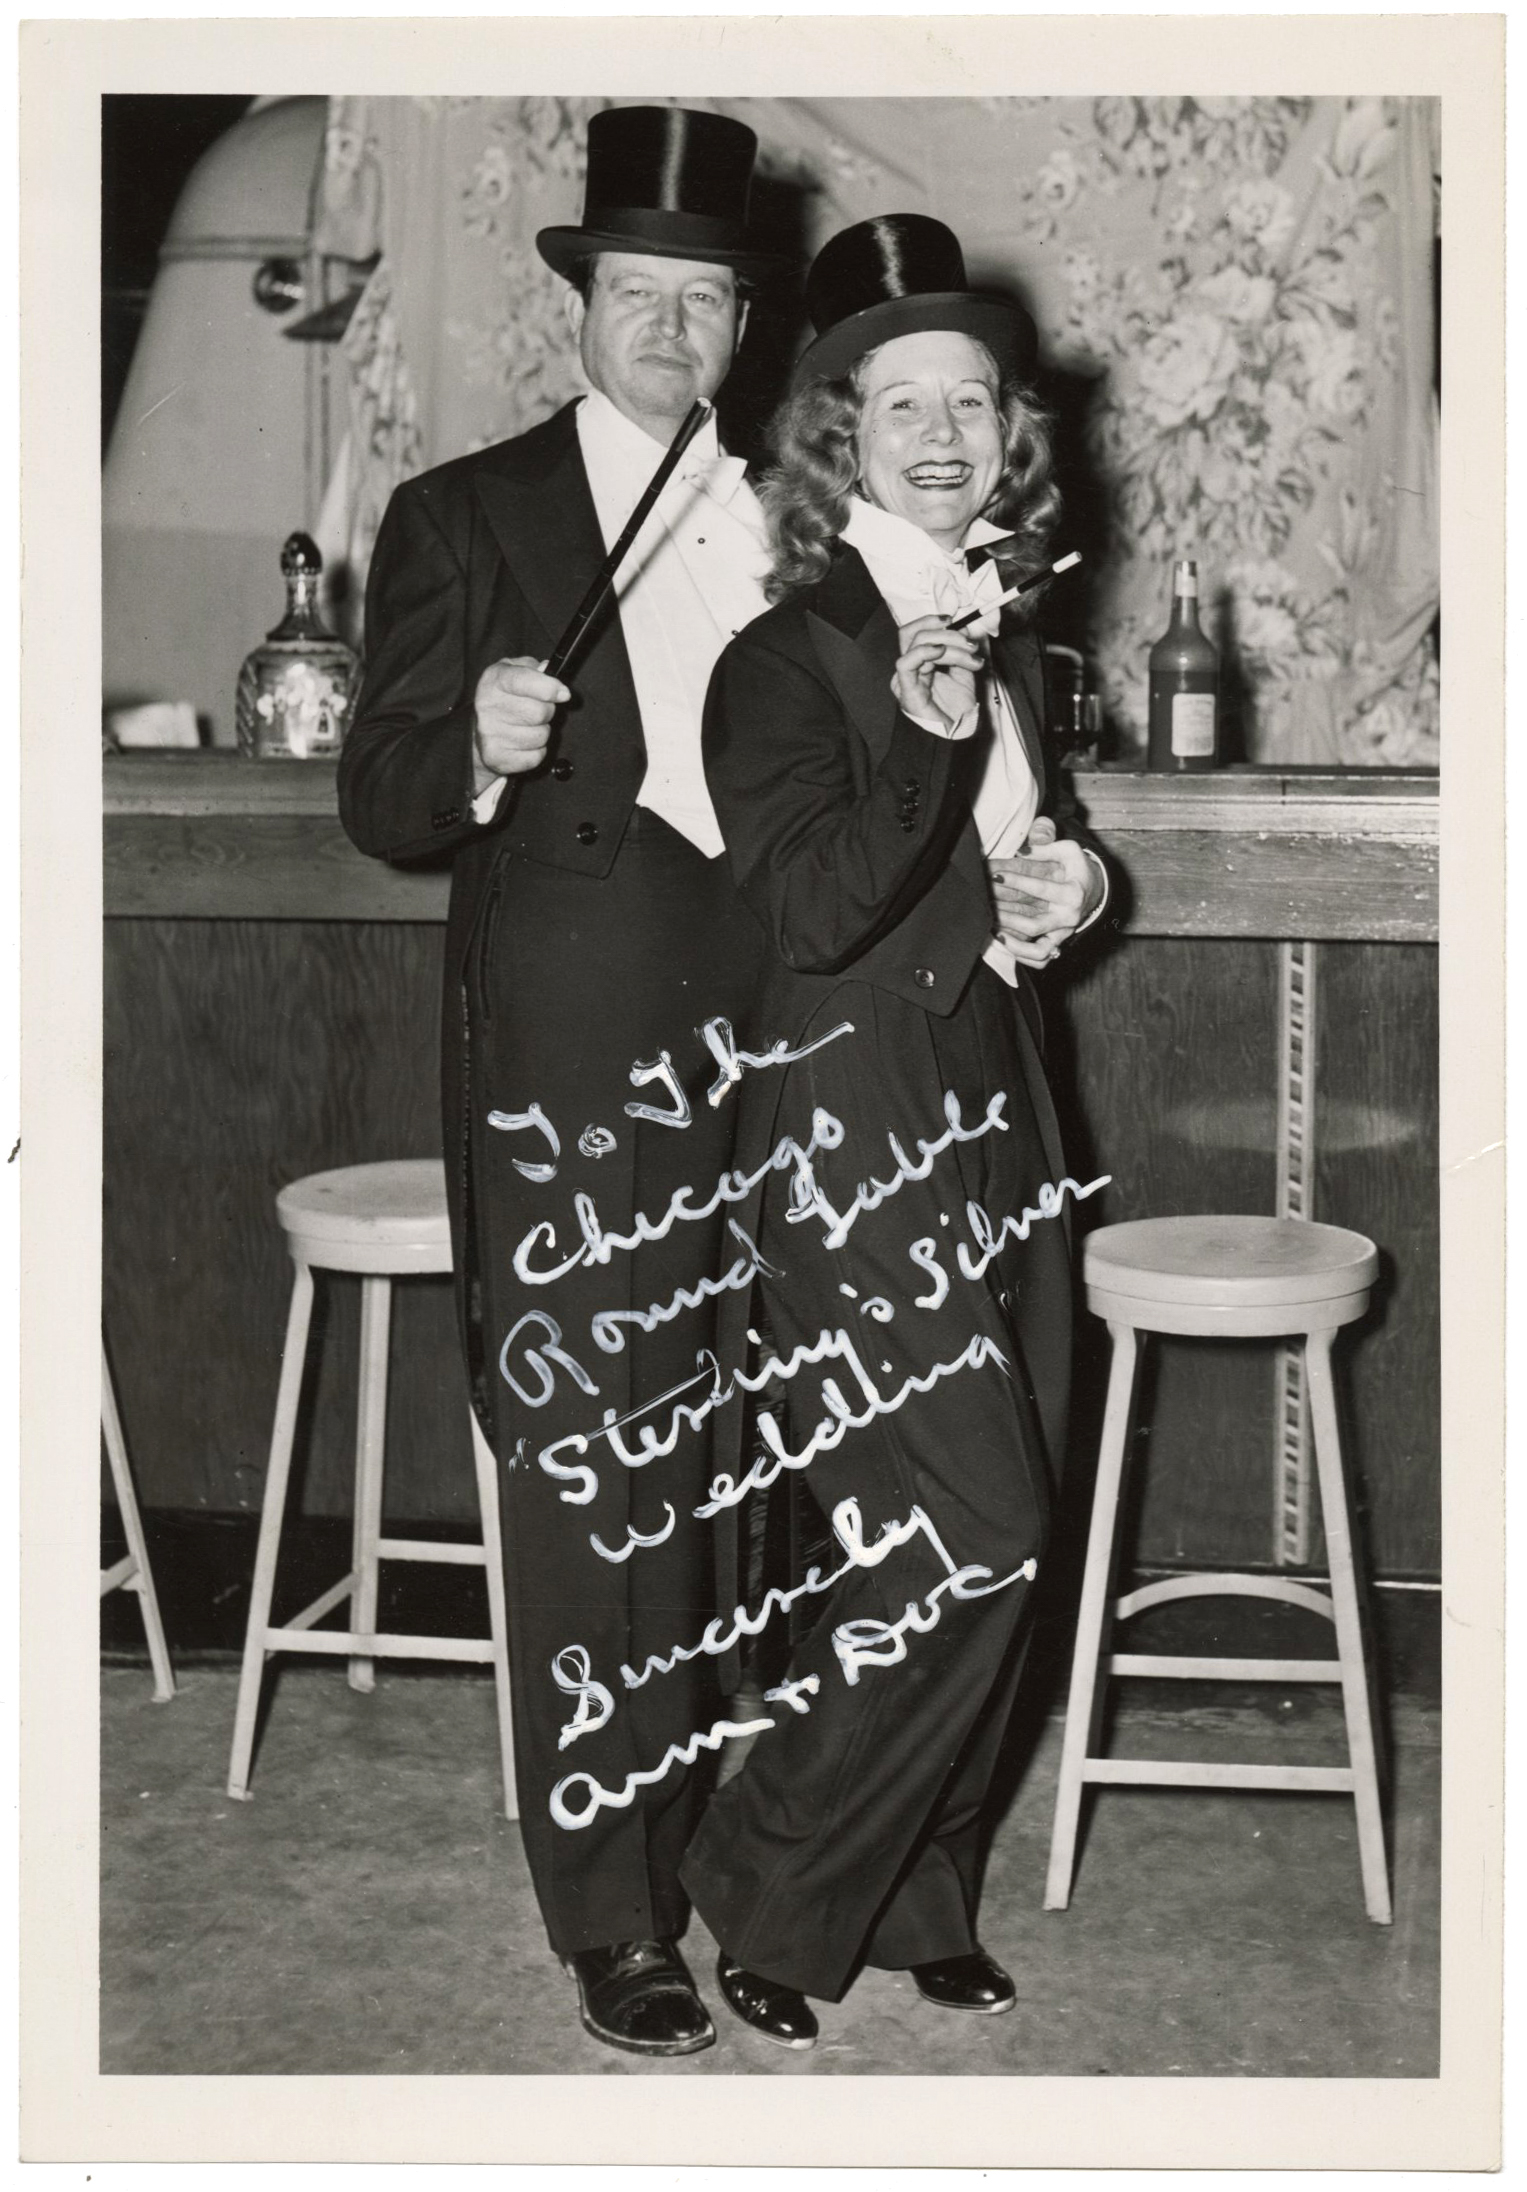 To The
Chicago
Round Table
"Sterling's Silver
Wedding
Sincerely
Ann + Doc.